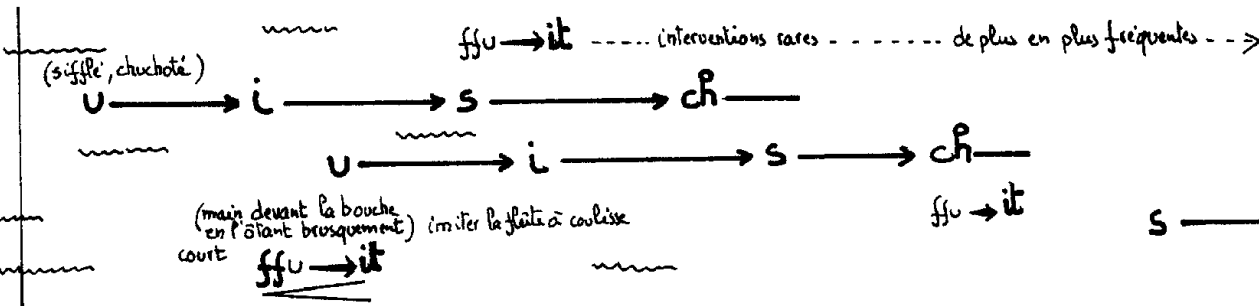 ffu → it ----- interventions rares - - - - - - - de plus en plus fréquentes - - →
(sifflé, chuchoté)
u → i → s → ch —
u → i → s → ch —
(main devant la bouche
en l'ôtant brusquement) imiter la flûte à coulisse
ffu → it
s —
court
ffu → it